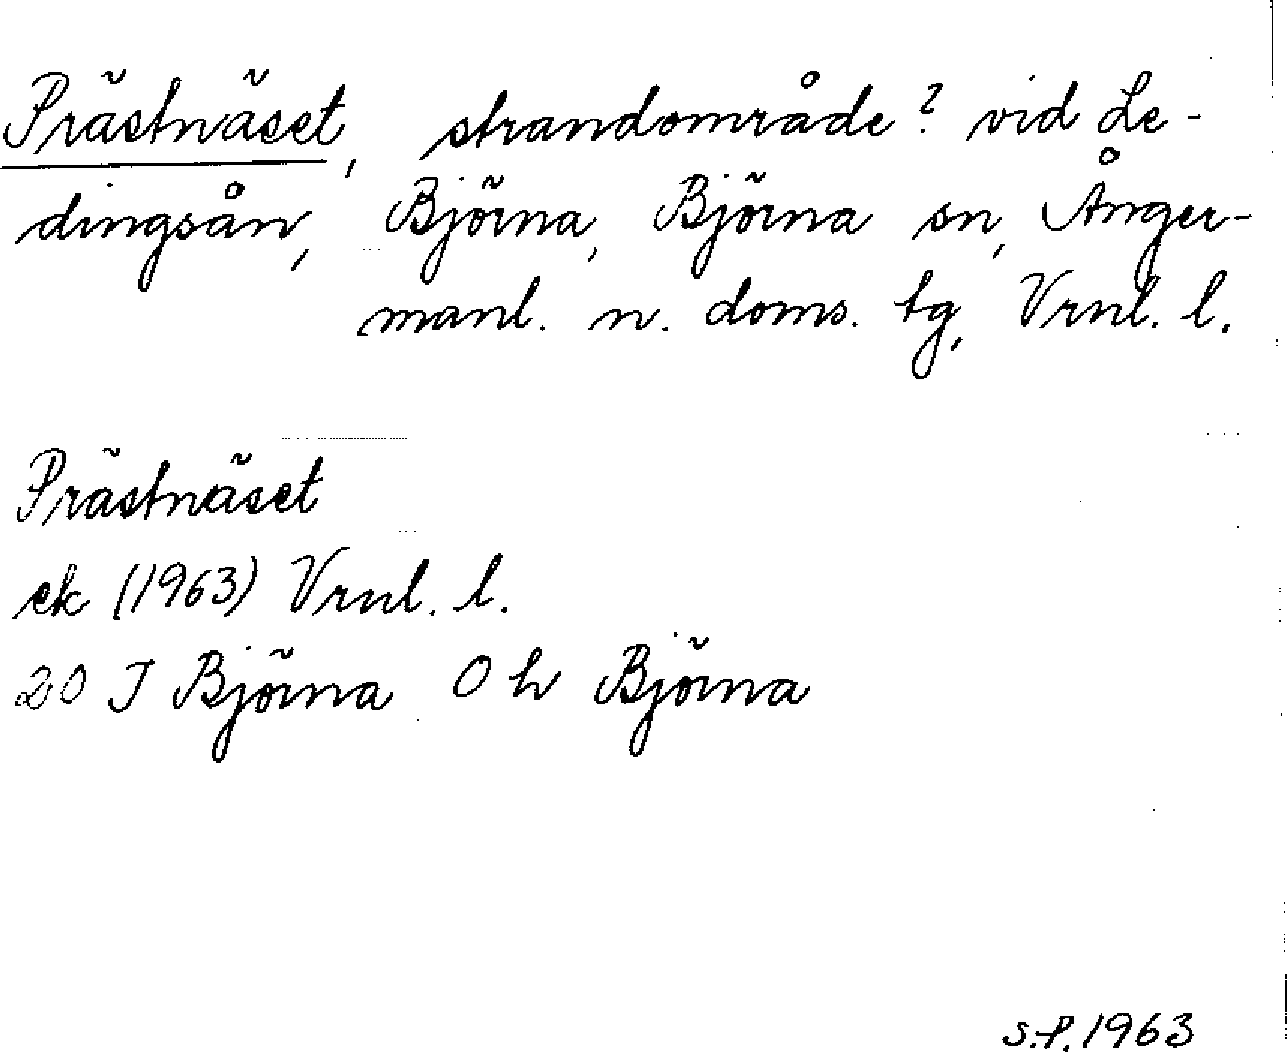 Prästnäset, strandområde? vid Le-
dingsån, Björna, Björna sn, Ånger-
manl. n. doms. tg, Vrnl. l.
Prästnäset
ek (1963) Vrnl. l.
20 J Björna O h Björna
S.P. 1963